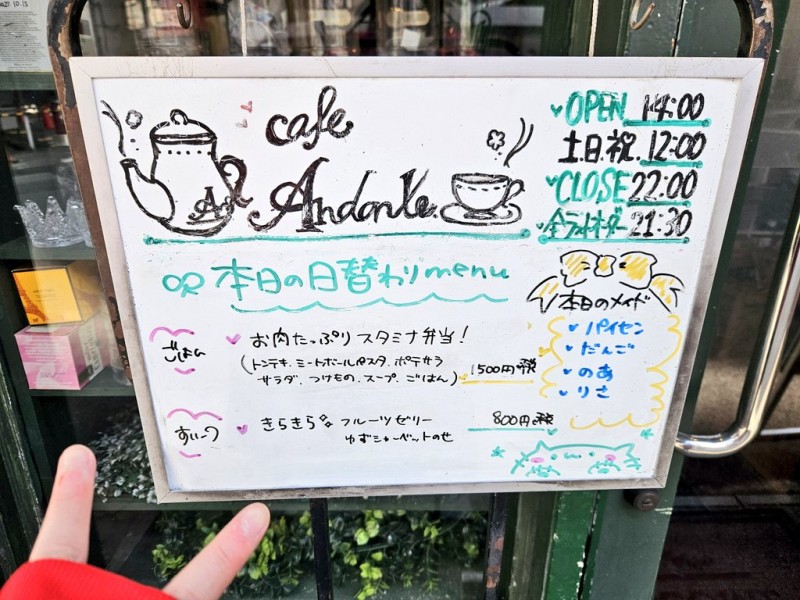 cafe
Andante
And
OPEN 14:00
土.日.祝. 12:00
CLOSE 22:00
全ラストオーダー 21:30
本日の日替わりmenu
本日のメイド
パイセン
だんご
のあ
りさ
ごはん
お肉たっぷりスタミナ弁当!
(トンテキ.ミートボールパスタ.ポテサラ
サラダ.つけもの.スープ.ごはん)
1500円+税
すいーつ
きらきら フルーツゼリー
ゆずシャーベットのせ
800円+税